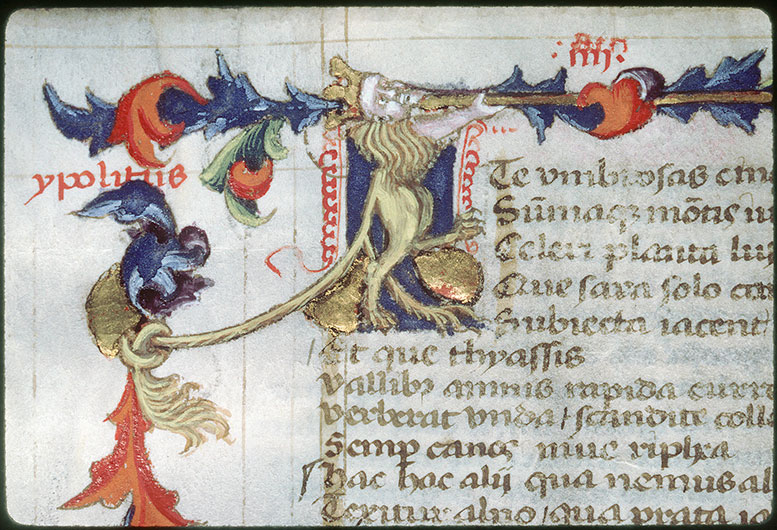 ypolitus
ITe vmbrosas
Sūmaqʒ mōtis iu
Celeri planta
Que saxa solo
Subiecta iacent
Et que thyassis
Vallibʒ amnis rapida
Verberat vnda / scandite
Semp canos niue riphea
Hac hac alij qua nemus al
Texitur alno / qua prata ia